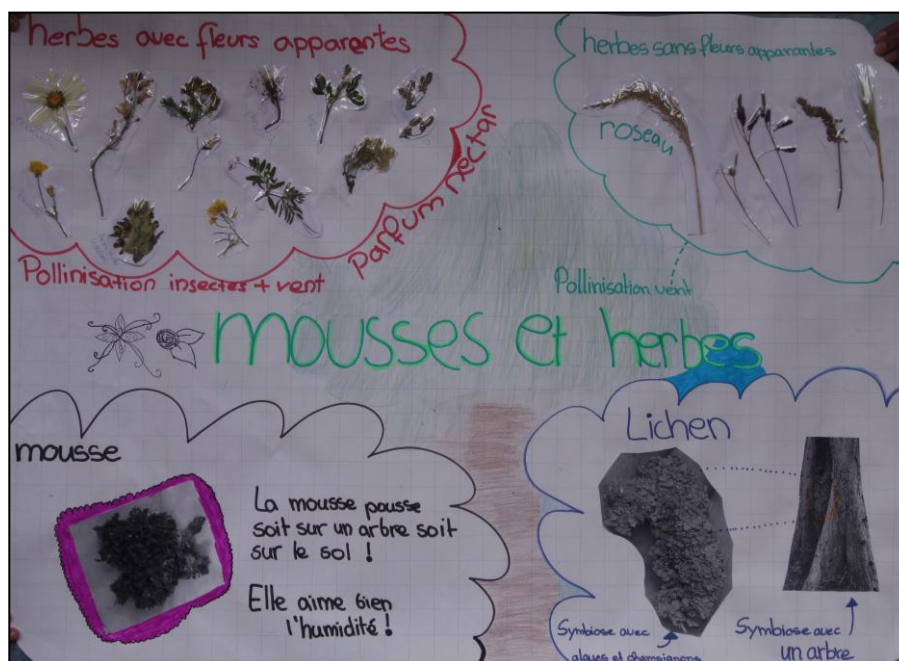 herbes avec fleurs apparentes
Parfum nectar
Pollinisation insectes + vent
herbes sans fleurs apparantes
roseau
Pollinisation vent
mousses et herbes
mousse
La mousse pousse
soit sur un arbre soit
sur le sol !
Elle aime bien
l'humidité !
Lichen
Symbiose avec
algues et champignons
Symbiose avec
un arbre